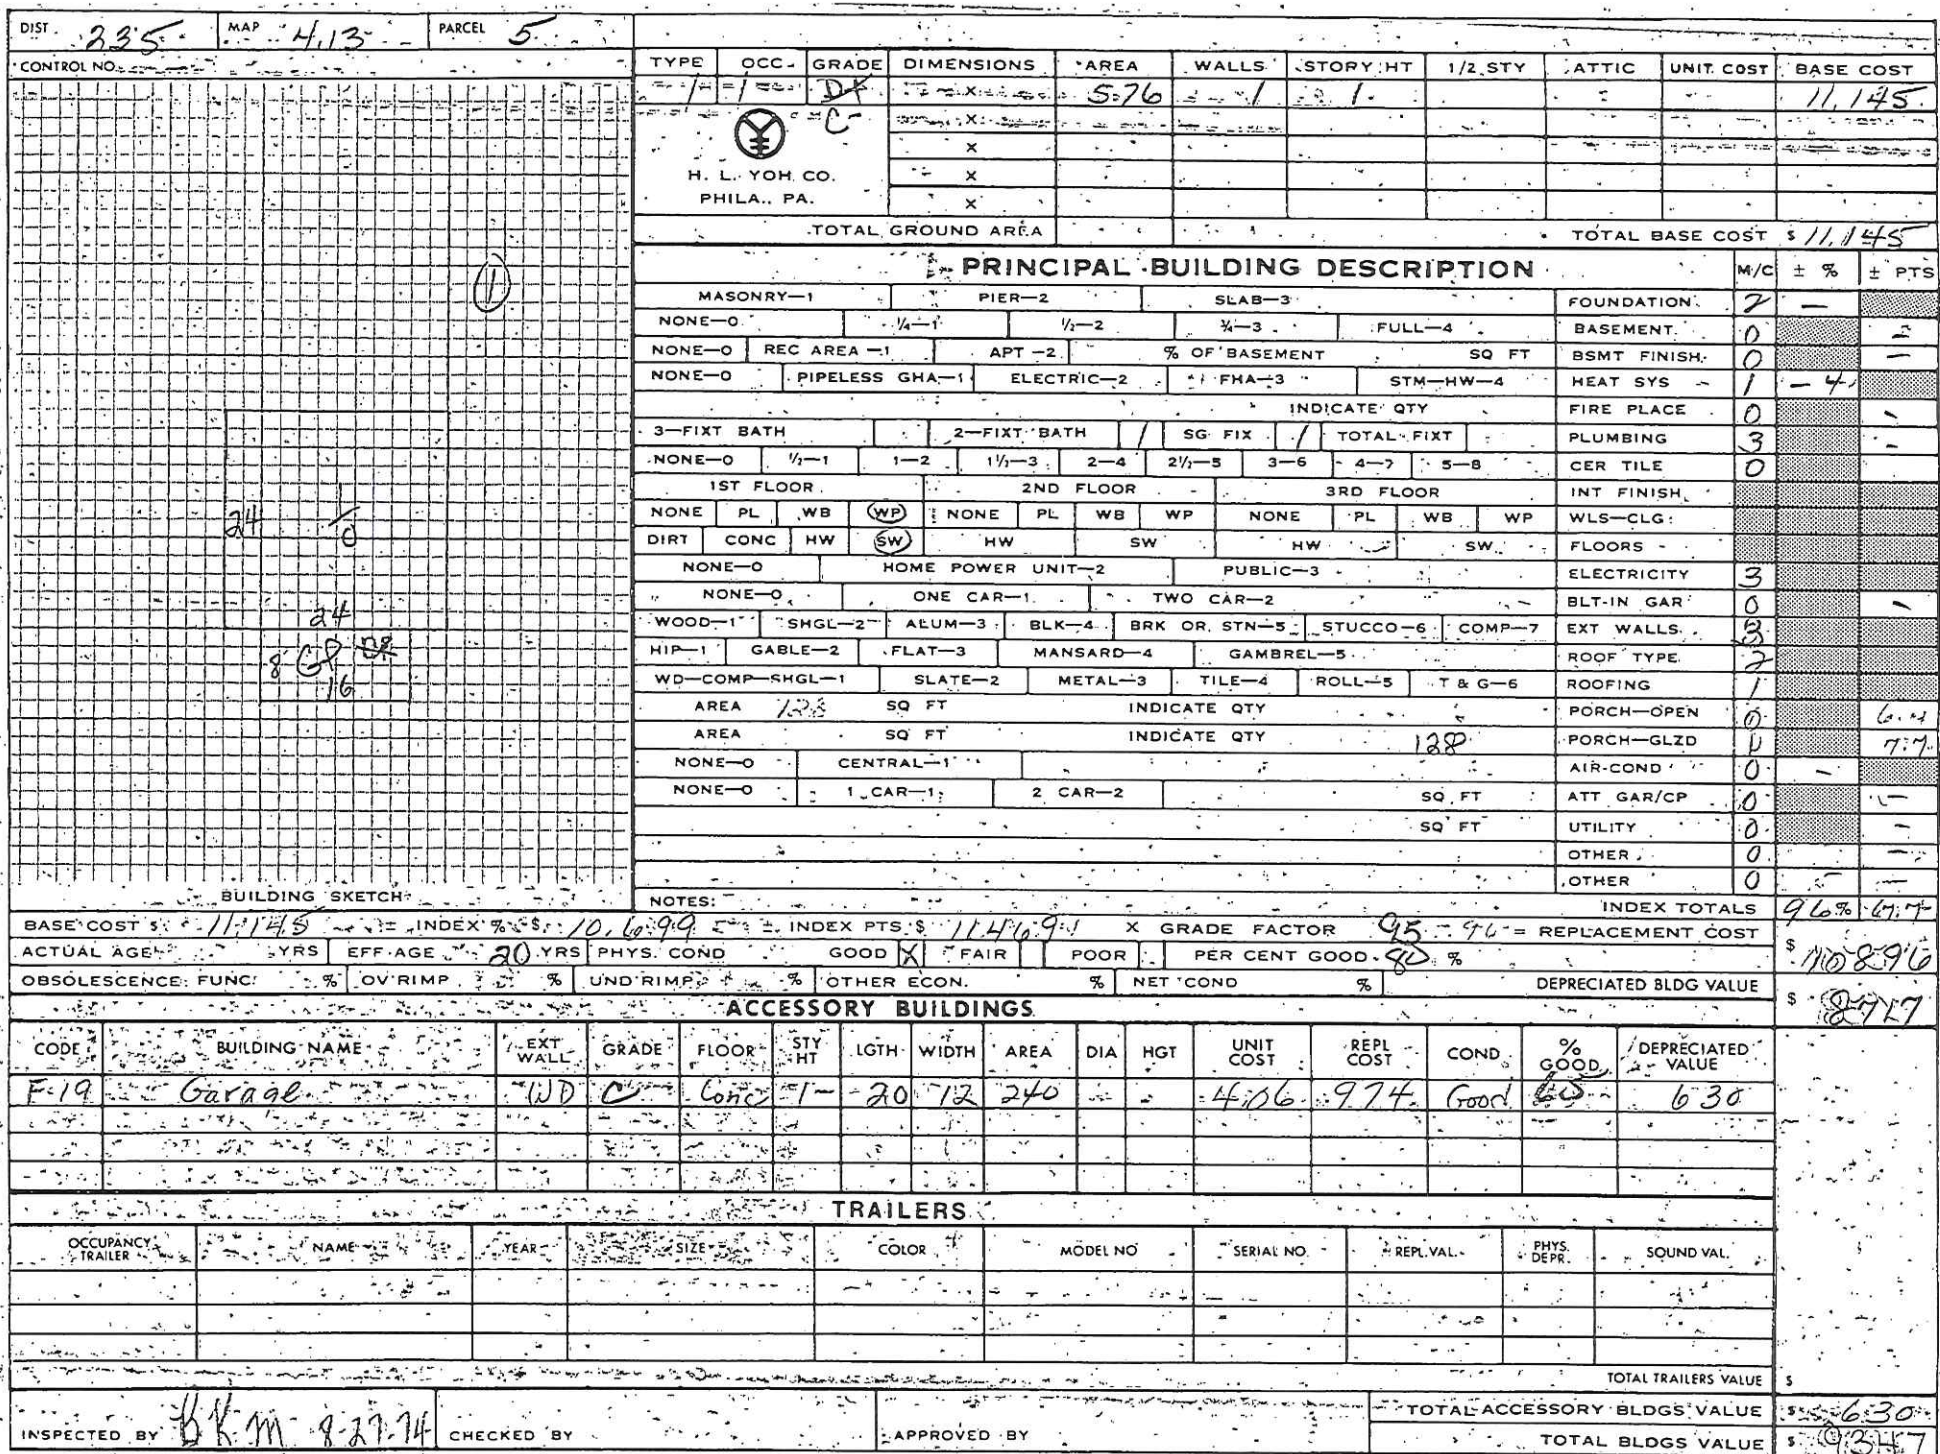 DIST. 235 MAP 4.13 PARCEL 5
CONTROL NO.
TYPE OCC. GRADE DIMENSIONS AREA WALLS STORY HT 1/2 STY ATTIC UNIT COST BASE COST
1 1 D+ X 576 1 1 11,145
C- X
X
H. L. YOH CO. X
PHILA., PA. X
TOTAL GROUND AREA TOTAL BASE COST $ 11,145
PRINCIPAL BUILDING DESCRIPTION M/C ± % ± PTS
MASONRY—1 PIER—2 SLAB—3 FOUNDATION 2 —
NONE—0 ¼—1 ½—2 ¾—3 FULL—4 BASEMENT 0 —
NONE—0 REC AREA—1 APT—2 % OF BASEMENT SQ FT BSMT FINISH 0 —
NONE—0 PIPELESS GHA—1 ELECTRIC—2 FHA—3 STM—HW—4 HEAT SYS 1 -4
INDICATE QTY FIRE PLACE 0 -
3—FIXT BATH 2—FIXT BATH 1 SG FIX 1 TOTAL FIXT PLUMBING 3 -
NONE—0 ½—1 1—2 1½—3 2—4 2½—5 3—6 4—7 5—8 CER TILE 0
1ST FLOOR 2ND FLOOR 3RD FLOOR INT FINISH
NONE PL WB WP NONE PL WB WP NONE PL WB WP WLS—CLG
DIRT CONC HW SW HW SW HW SW FLOORS
NONE—0 HOME POWER UNIT—2 PUBLIC—3 ELECTRICITY 3
NONE—0 ONE CAR—1 TWO CAR—2 BLT-IN GAR 0 -
WOOD—1 SHGL—2 ALUM—3 BLK—4 BRK OR STN—5 STUCCO—6 COMP—7 EXT WALLS 3
HIP—1 GABLE—2 FLAT—3 MANSARD—4 GAMBREL—5 ROOF TYPE 2
WD—COMP—SHGL—1 SLATE—2 METAL—3 TILE—4 ROLL—5 T & G—6 ROOFING 1
AREA 128 SQ FT INDICATE QTY PORCH—OPEN 0
AREA SQ FT INDICATE QTY 128 PORCH—GLZD 7.7
NONE—0 CENTRAL—1 AIR-COND 0 -
NONE—0 1 CAR—1 2 CAR—2 SQ FT ATT GAR/CP 0 —
SQ FT UTILITY 0 —
OTHER 0 —
OTHER 0 — —
1
24 1/0
24
8 GP
16
BUILDING SKETCH
NOTES: INDEX TOTALS 96%
BASE COST $ 11,145 ± INDEX % $ 10,699 ± INDEX PTS $ 11469 X GRADE FACTOR 95 = REPLACEMENT COST
ACTUAL AGE YRS EFF AGE 20 YRS PHYS. COND GOOD X FAIR POOR PER CENT GOOD 80 % $ 10896
OBSOLESCENCE: FUNC. % OV'RIMP % UND'RIMP % OTHER ECON. % NET COND % DEPRECIATED BLDG VALUE $ 8717
ACCESSORY BUILDINGS
CODE BUILDING NAME EXT WALL GRADE FLOOR STY HT LGTH WIDTH AREA DIA HGT UNIT COST REPL COST COND % GOOD DEPRECIATED VALUE
F-19 Garage WD C Conc 1 20 12 240 4.06 974 Good 630
TRAILERS
OCCUPANCY TRAILER NAME YEAR SIZE COLOR MODEL NO SERIAL NO. REPL. VAL. PHYS. DEPR. SOUND VAL.
TOTAL TRAILERS VALUE $
TOTAL ACCESSORY BLDGS VALUE $ 630
INSPECTED BY BKM 8-27-74 CHECKED BY APPROVED BY TOTAL BLDGS VALUE $ 9347